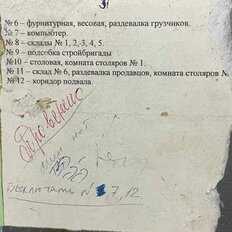 № 6 – фурнитурная, весовая, раздевалка грузчиков.
№ 7 – компьютер.
№ 8 – склады № 1, 2, 3, 4, 5.
№ 9 – подсобка стройбригады
№10 – столовая, комната столяров № 1.
№ 11 – склад № 6, раздевалка продавцов, комната столяров №
№ 12 – коридор подвала.
Проверено
выключать № 7, 12